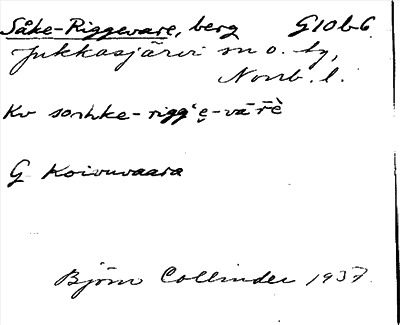 Såke-Riggevare, berg G10b6
Jukkasjärvi sn o. tg,
Norrb. l.
Kv sonhke-rigg'ḙ-vārḕ
G Koivuvaara
Björn Collinder 1937